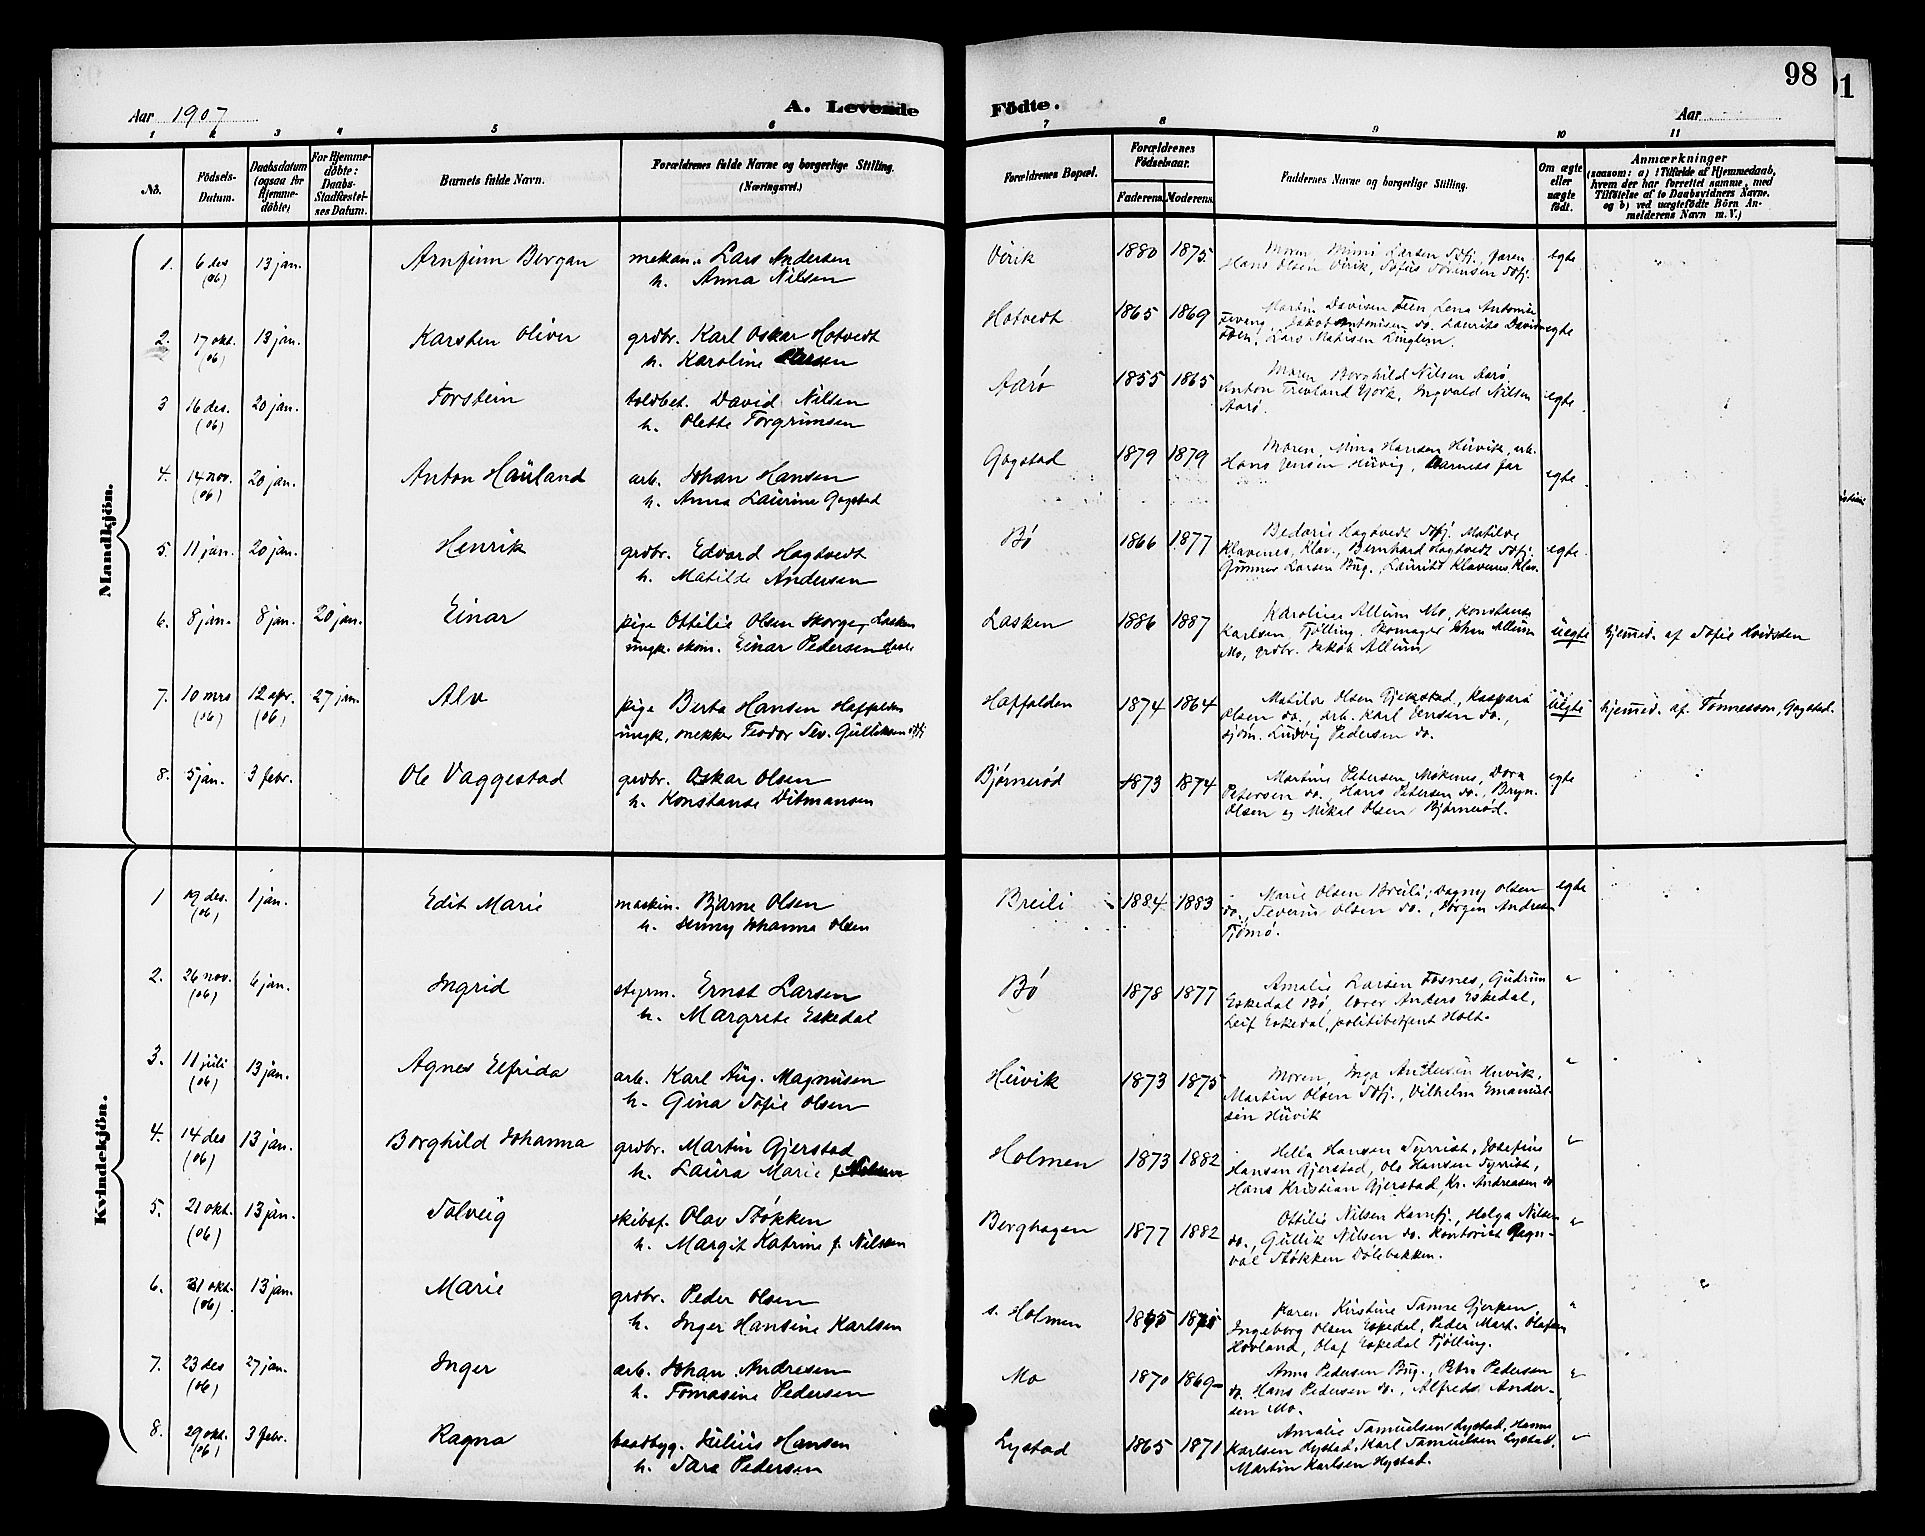 98
Aar 1907
A. Levende Födte.
Aar
1 2 3 4 5 6 7 8 9 10 11
No.
Födsels-Datum.
Daabsdatum (ogsaa for Hjemme-döbte)
For Hjemme-döbte: Daabs-Stadfæstel-ses Datum.
Barnets fulde Navn.
Forældrenes fulde Navne og borgerlige Stilling. (Næringsvei.)
Forældrenes Bopæl.
Forældrenes Födselsaar.
Faderens. Moderens.
Faddernes Navne og borgerlige Stilling.
Om ægte eller uægte födt.
Anmærkninger
(saasom: a) i Tilfælde af Hjemmedaab, hvem der har forrettet samme, med Tilföielse af to Daabsvidners Navne, og b) ved uægtefödte Börn An-melderens Navn m. V.)
Mandkjön.
1. 6 des (06) 13 jan. Arnfinn Bergan mekan. Lars Andersen
h. Anna Nilsen
Virik 1880 1875 Moren, Mimi Larsen Sdfj., faren
Hans Olsen Virik, Sofus Sørensen Sdfj. egte
2. 17 okt. (06) 13 jan. Karsten Oliver grdbr. Karl Oskar Hotvedt
h. Karoline Larsen
Hotvedt 1865 1869 Martin Davisen Feen, Lena Antonie
Feveng, Jakob Antonisen do. Laurits David
Foen, Lars Matisen Lingelem. egte
3 16 des. (06) 20 jan. Torstein toldbet. David Nilsen
h. Olette Torgrimsen
Aarø 1855 1865 Moren, Borghild Nilsen Aarø,
Anton Trevland York, Ingvald Nilsen
Aarø. egte
4. 14 nov. (06) 20 jan. Anton Hauland arb. Johan Hansen
h. Anna Laurine Gogstad
Gogstad 1879 1879 Moren, Mina Hansen Huvik, arb.
Hans Jensen Huvig, Barnets far egte
5. 11 jan. 20 jan. Henrik grdbr. Edvard Hagtvedt
h. Matilde Andersen
Bø 1866 1877 Bedarie Hagtvedt Sdfj. Matilde
Klavenes, Klav., Bernhard Hagtvedt Sdfj.
Gunner Larsen Bug., Laurits Klavenes Klav. egte
6. 8 jan. 8 jan. 20 jan. Einar pige Ottilie Olsen Skorge, Lasken
ungk. skom. Einar Pedersen
Lasken 1886 1887 Karoline Allum Mo, Konstanse
Karlsen, Tjølling. Skomager Johan Allum
Mo, grdbr. Jakob Allum uegte hjemmed. af Sofie
7. 10 mrs (06) 12 apr. (06) 27 jan. Alv pige Berta Hansen Haffalden
ungk. snekker Teodor Sev. Gulliksen Sdfj
Haffalden 1874 1864 Matilde Olsen Gjekstad, Kaspara
Olsen do., arb. Karl Jensen do.,
sjøm. Ludvig Pedersen do. uegte hjemmed. af Tønnesson, Gogstad.
8. 5 jan. 3 febr. Ole Vaggestad grdbr. Oskar Olsen
h. Konstanse Ditmansen
Bjørnerød 1873 1874 Martine Petersen, Møkenes, Dora
Petersen do. Hans Petersen do., Bryn.
Olsen og Mikal Olsen Bjørnerød. egte
Kvindekjön.
1 19 des. (06) 1 jan. Edit Marie maskin. Bjarne Olsen
h. Jenny Johanna Olsen
Breili 1884 1883 Marie Olsen Breili, Dagny Olsen
do., Severin Olsen do., Jørgen Andresen
Tjømø. egte
2. 26 nov. (06) 6 jan. Ingrid styrm. Ernst Larsen
h. Margrete Eskedal
Bø 1878 1877 Amalie Larsen Fosnes, Gudrun
Eskedal Bø, lærer Anders Eskedal,
Leif Eskedal, politibetjent Holt. "
3. 11 juli (06) 13 jan. Agnes Elfrida arb. Karl Aug. Magnusen
h. Gina Sofie Olsen
Huvik 1873 1875 Moren, Inga Antonsen Huvik,
Martin Olsen Sdfj., Vilhelm Emanuel-
sen Huvik "
4. 14 des (06) 13 jan. Borghild Johanna grdbr. Martin Gjerstad
h. Laura Marie f. Nilsen
Holmen 1873 1882 Hella Hansen Syrrist, Josefine
Hansen Gjerstad, Ole Hansen Syrrist,
Hans Kristian Gjerstad, Kr. Andreasen do "
5. 21 okt. (06) 13 jan. Solveig skibsf. Olav Støkken
h. Margit Katrine f. Nilsen
Berghagen 1877 1882 Ottilie Nilsen Kamfj., Helga Nilsen
do., Gullik Nilsen do. kontorist Ragn-
val Støkken Dølebakken. "
6. 31 okt. (06) 13 jan. Marie grdbr. Peder Olsen
h. Inger Hansine Karlsen
s. Holmen 1865 1875 Karen Kirstine Sanne Gjerken,
Ingeborg Olsen Eskedal, Peder Mart. Olafsen
Hovland, Olaf Eskedal Tjølling. "
7. 23 des (06) 27 jan. Inger arb. Johan Andresen
h. Tomasine Pedersen
Mo 1870 1869 Anna Pedersen Bug., Petra Pedersen
do. Hans Pedersen do., Alfreds Ander-
sen Mo. "
8. 29 okt. (06) 3 febr. Ragna baadbyg. Julius Hansen
h. Sara Pedersen
Lystad 1865 1871 Amalie Samuelsen Lystad, Hanna
Karlsen Lystad, Karl Samuelsen Lystad,
Martin Karlsen Hystad. "